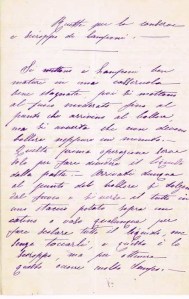 Ricetta per la conserva
e sciroppo di lamponi. —
Si mettano i lamponi ben
maturi in una casseruola
ben stagnata poi si mettano
al fuoco moderato fino al
punto che arrivino al bollore,
ma si avverta che non devono
bollire neppure un minuto.
Questa prima operazione serve
solo per fare sortire il liquido
dalla pasta. — Arrivati dunque
al punto del bollore si tolgono
dal fuoco e si versa il tutto in
uno staccio
catino o vaso qualunque per
fare declare tutto il liquido, ma
senza toccarli, e questo è lo
sciroppo, ma per
questo occorre molto tempo.